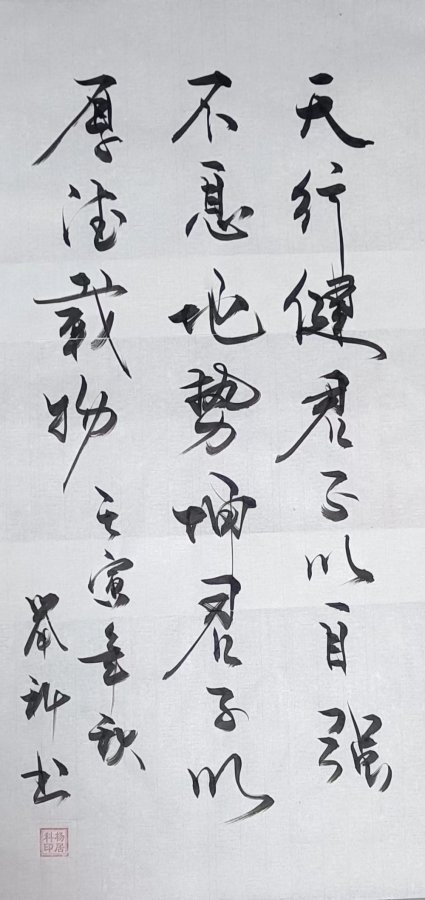 天行健君子以自强
不息地势坤君子以
厚德载物
壬寅年秋
科书
杨居
科印